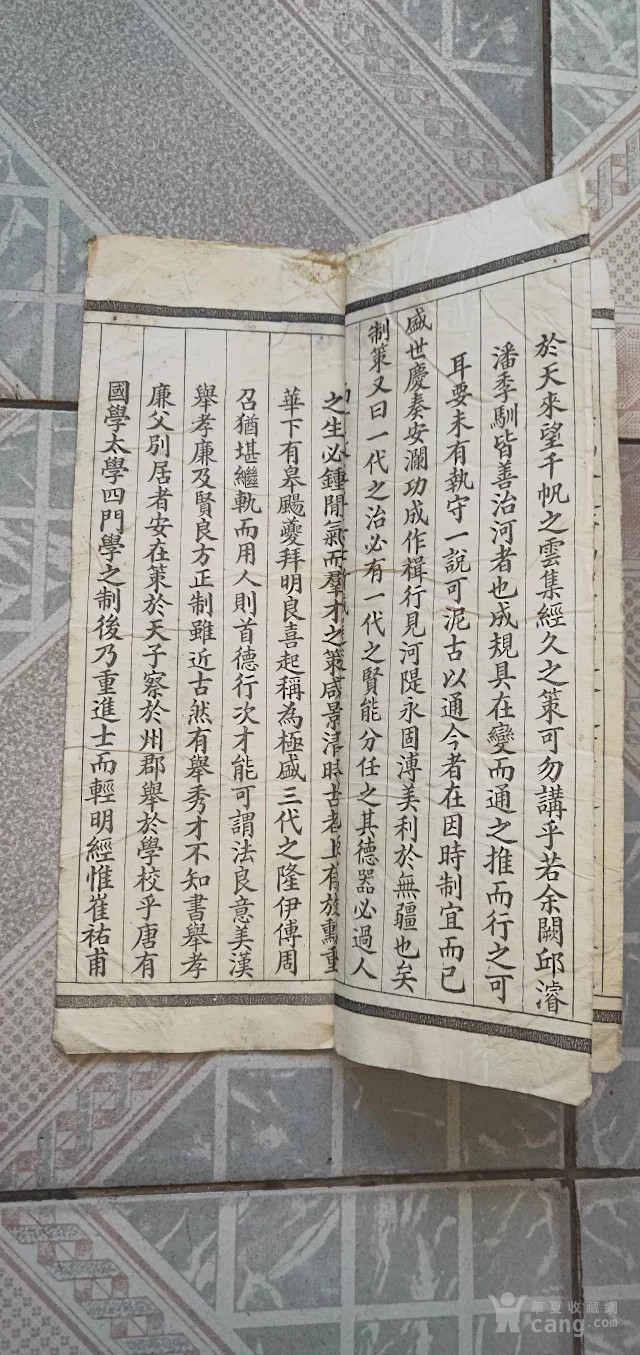 於天來望千帆之雲集經久之策可勿講乎若余闕邱濬
潘季馴皆善治河者也成規具在變而通之推而行之可
耳要未有執守一說可泥古以通今者在因時制宜而已
盛世慶奏安瀾功成作楫行見河隄永固溥美利於無疆也矣
制策又曰一代之治必有一代之賢能分任之其德器必過人
之生必鍾閒氣而羣才之策咸景清時古者上有放勳重
華下有皋颺夔拜明良喜起稱為極盛三代之隆伊傅周
召猶堪繼軌而用人則首德行次才能可謂法良意美漢
舉孝廉及賢良方正制雖近古然有舉秀才不知書舉孝
廉父別居者安在策於天子察於州郡舉於學校乎唐有
國學太學四門學之制後乃重進士而輕明經惟崔祐甫
華夏收藏網
cang.com